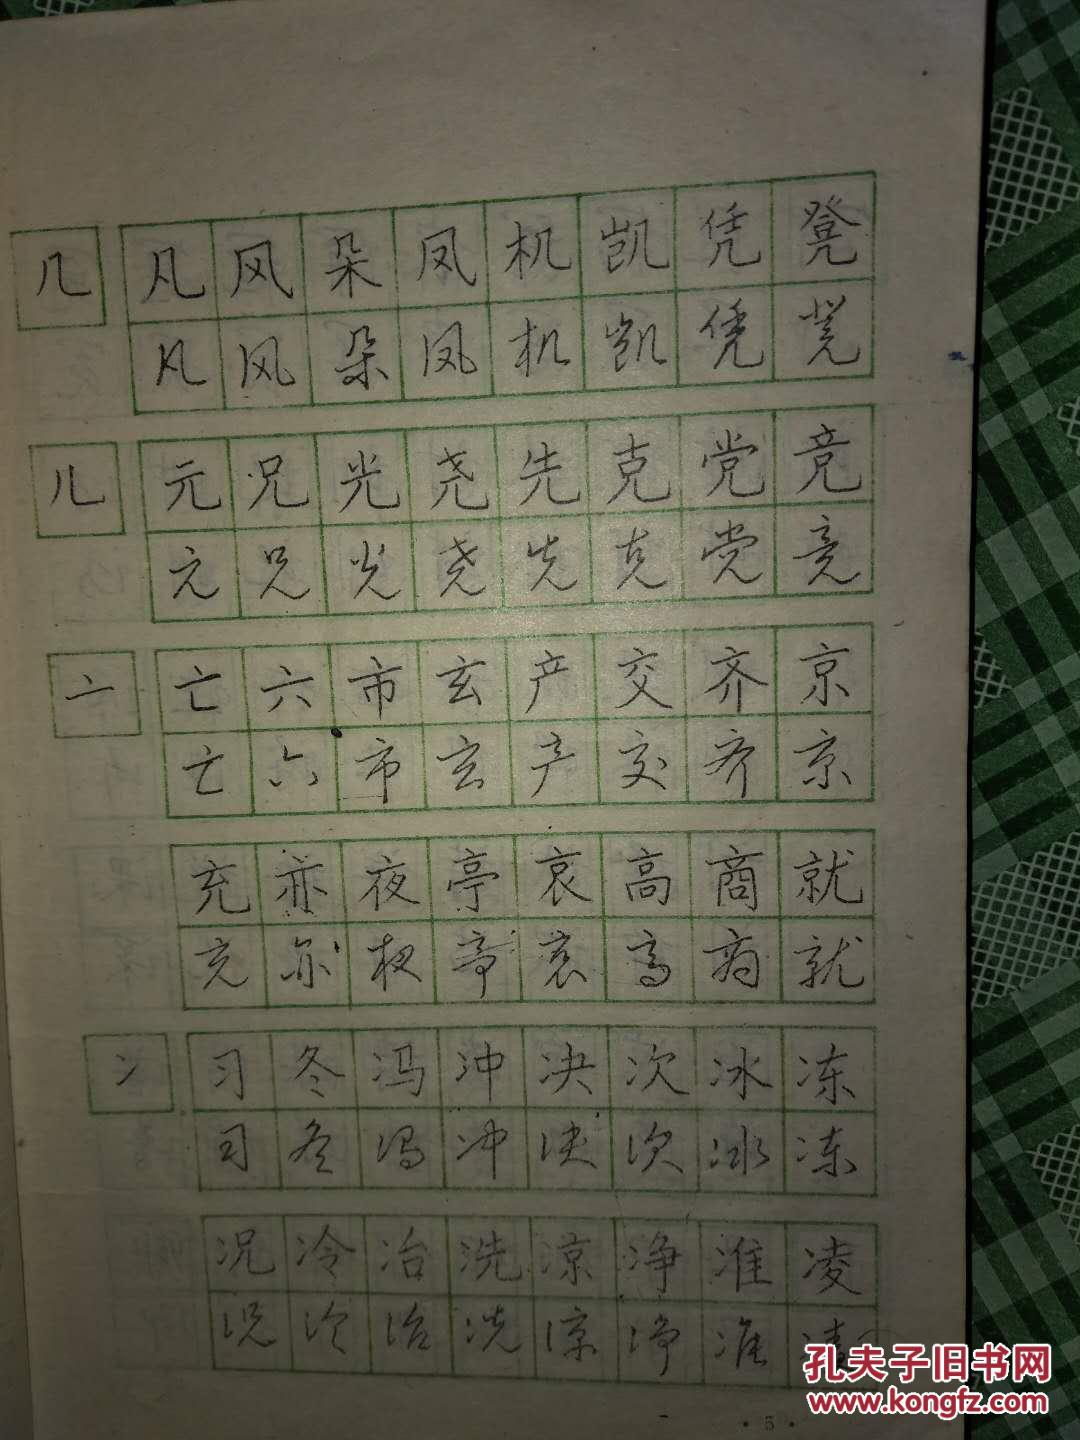 几 凡 风 朵 凤 机 凯 凭 凳
凡 风 朵 凤 机 凯 凭 凳
儿 元 兄 光 尧 先 克 党 竞
元 兄 光 尧 先 克 党 竞
亠 亡 六 市 玄 产 交 齐 京
亡 六 市 玄 产 交 齐 京
充 亦 夜 亭 哀 高 商 就
充 亦 夜 亭 哀 高 商 就
冫 习 冬 冯 冲 决 次 冰 冻
习 冬 冯 冲 决 次 冰 冻
况 冷 冶 冼 凉 净 准 凌
况 冷 冶 冼 凉 净 准
孔夫子旧书网
www.kongfz.com
· 5 ·